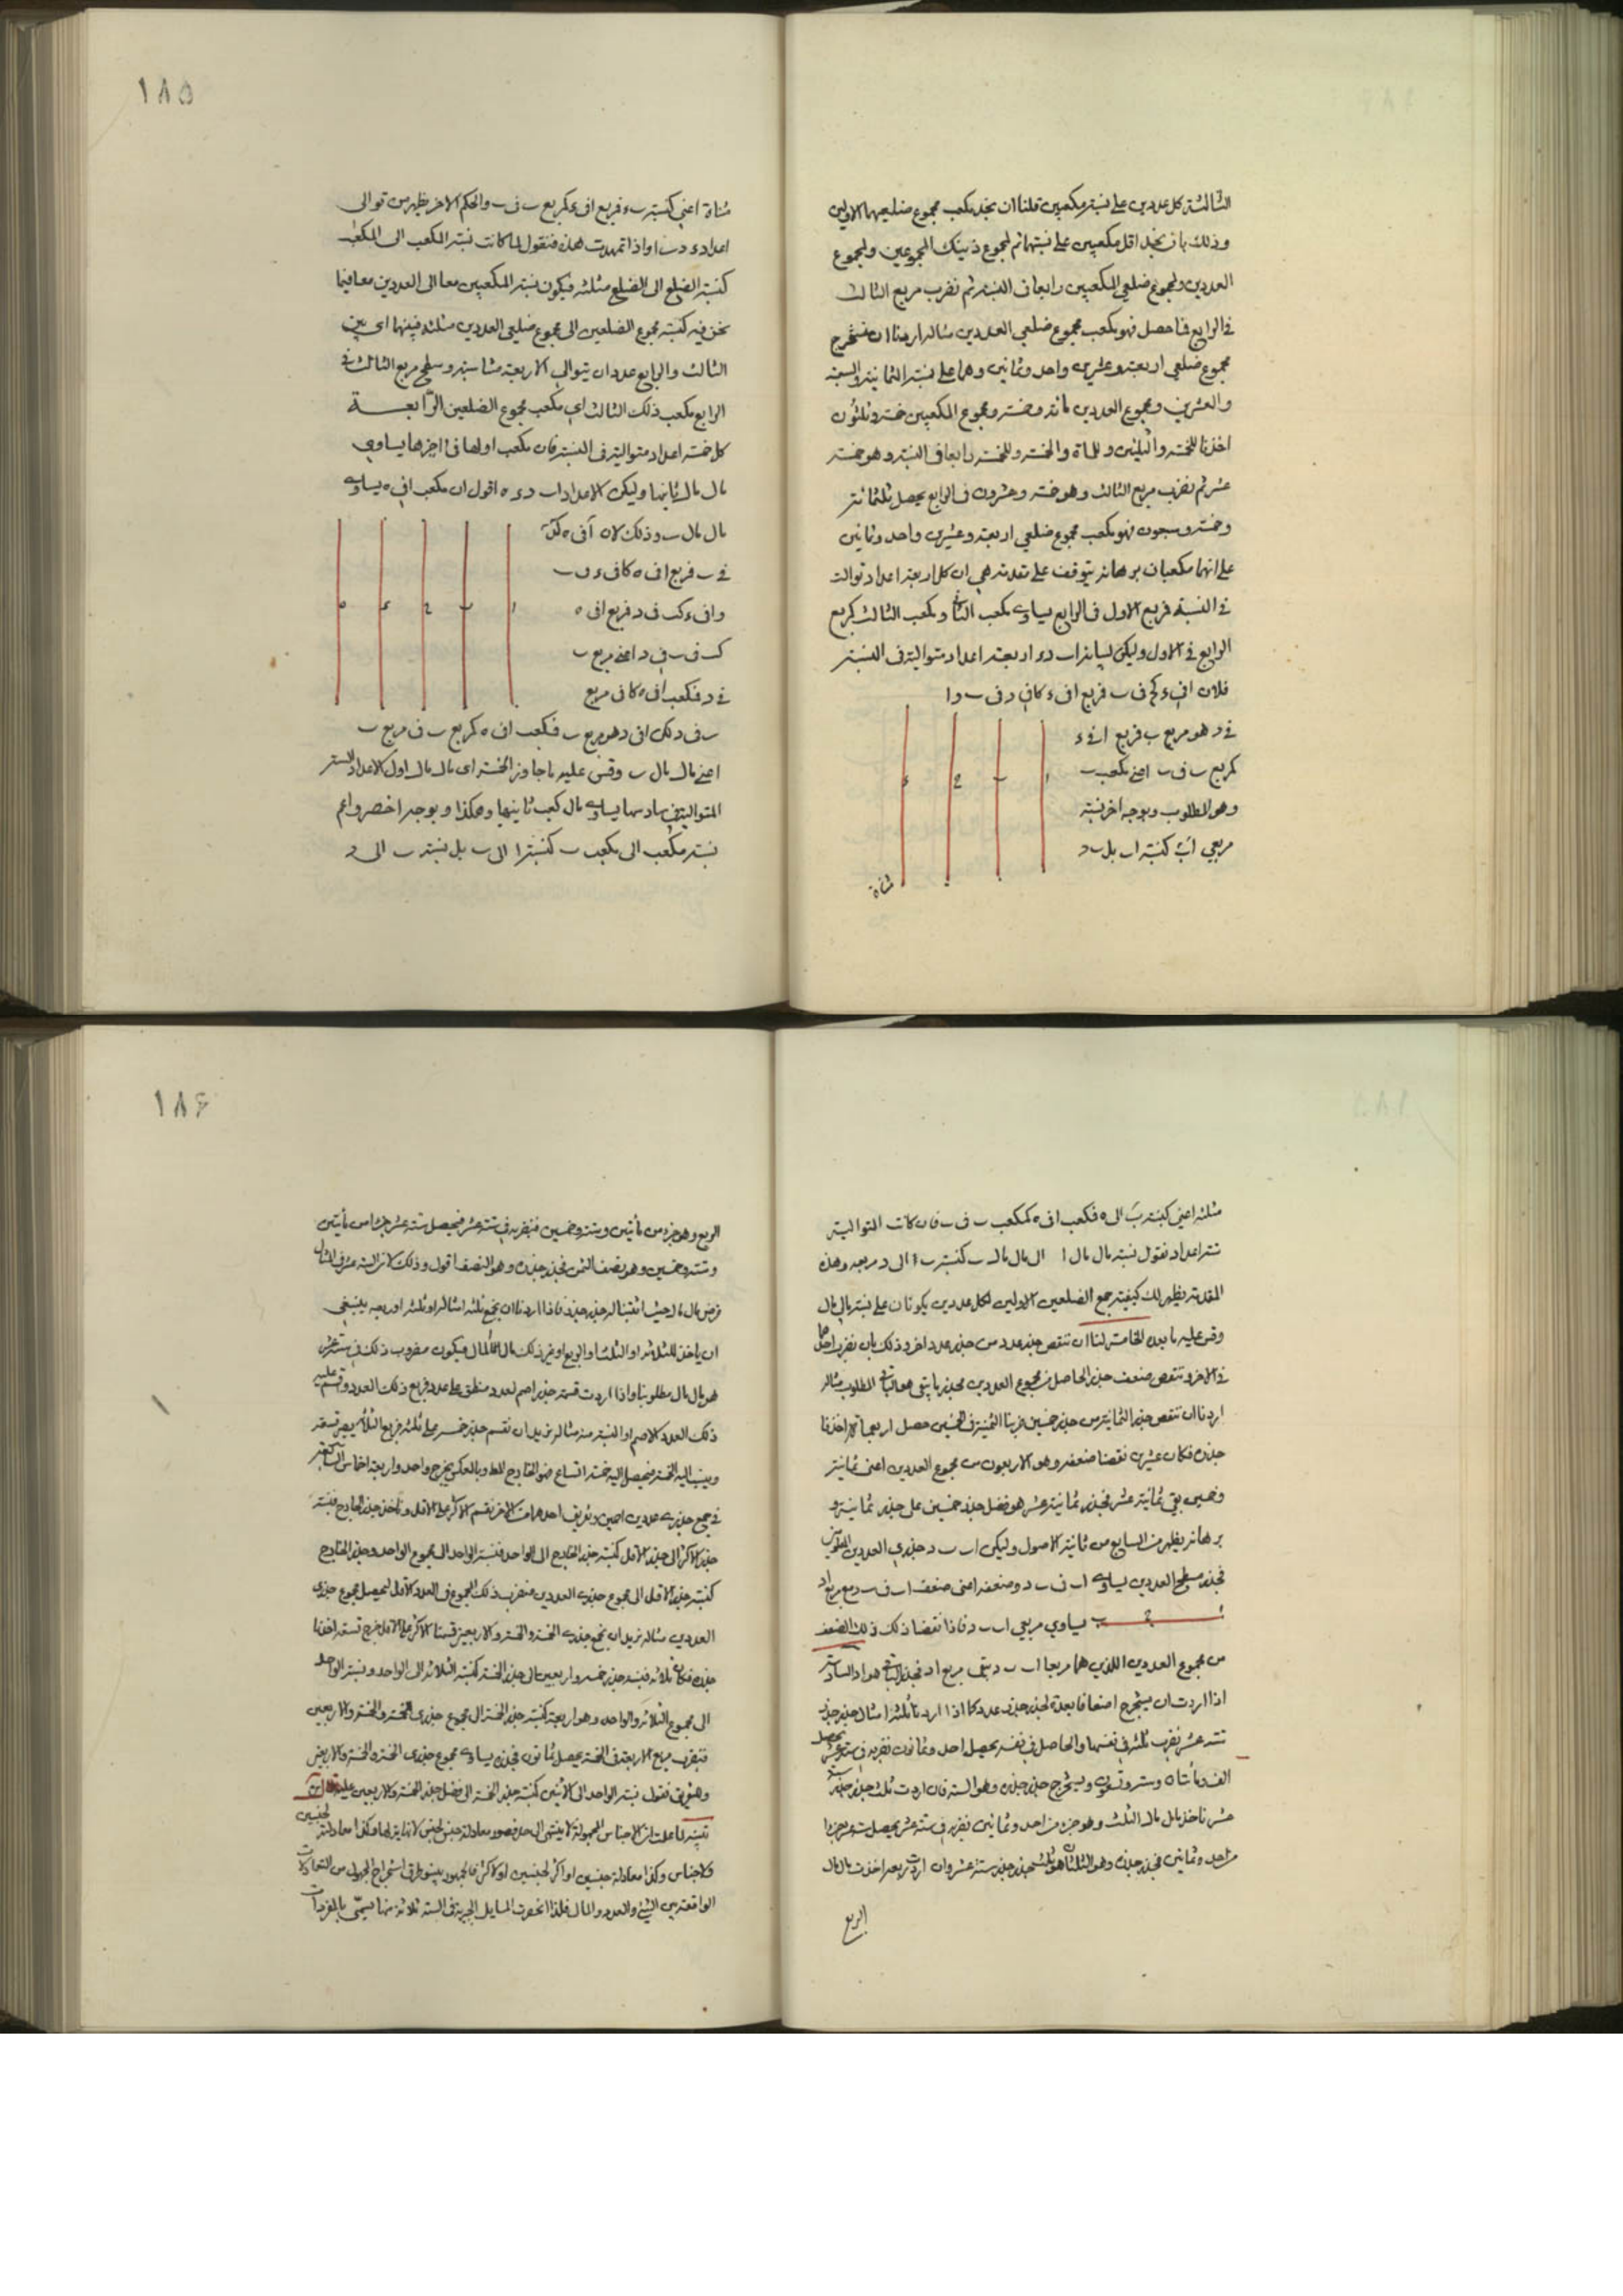 الثالثة كل عددين على نسبة مكعبين قلنا ان نجد مكعب مجموع ضلعيهما الاولين
وذلك بان نجد اقل مكعبين على نسبتهما ثم لمجموع ذينك المجموعين ولمجموع
العددين ولمجموع ضلعي المكعبين رابعا في النسبة ثم نضرب مربع الثالث
في الرابع فما حصل فهو مكعب مجموع ضلعي العددين مثاله اردنا ان نستخرج
مجموع ضلعي اربعة وعشرين واحد وثمانين وهما على نسبة الثمانية والسبعة
والعشرين ومجموع العددين مائة وخمسة ومجموع المكعبين خمسة وثلثون
اخذنا للخمسة والثلثين وللمائة والخمسة وللخمسة رابعا في النسبة وهو خمسة
عشر ثم نضرب مربع الثالث وهو خمسة وعشرون في الرابع يحصل ثلثمائة
وخمسة وسبعون فهو مكعب مجموع ضلعي اربعة وعشرين واحد وثمانين
على انهما مكعبان برهانه يتوقف على مقدمة هي ان كل اربعة اعداد توالت
في النسبة فربع الاول في الرابع يساوي مكعب الثاني ومكعب الثالث كربع
الرابع في الاول وليكن لبيانه ا ب د ء اربعة اعداد متوالية في النسبة
فلان ا في ء كح في ب فربع ا في ء كا في د في ب وا
في د هو مربع ب فربع ا في ء
كربع ب في ب اعني مكعب ب
وهو المطلوب وبوجه اخر نسبة
مربعي ا ب كنسبة ا ب بل ب د
ا ب ح ء
مثناة
١٨٥
مثناة اعني كنسبة ب ء فربع ا في ء كربع ب في ب والحكم الاخر يظهر من توالي
اعداد ء د ب ا واذا تمهدت هذه فنقول لما كانت نسبة المكعب الى المكعب
كنسبة الضلع الى الضلع مثلثة فيكون نسبة المكعبين معا الى العددين معا فيما
نحن فيه كنسبة مجموع الضلعين الى مجموع ضلعي العددين مثلثة فبينهما اي بين
الثالث والرابع عددان يتوالى الاربعة متناسبة وسطح مربع الثالث في
الرابع مكعب ذلك الثالث اي مكعب مجموع الضلعين الرابعة
كل خمسة اعداد متوالية في النسبة فان مكعب اولها في اخرها يساوي
مال مال ثانيها وليكن الاعداد ا ب د ء ه اقول ان مكعب ا في ه يساوي
مال مال ب وذلك لان ا في ه كد
في ب فربع ا في ه كا في ء في ب
وا في ء كب في د فربع ا في ه
كب في ب في د اعني مربع ب
في د فمكعب ا في ه كا في مربع
ا ب ح ء ه
ب في د لكن ا في د هو مربع ب فمكعب ا في ه كربع ب في مربع ب
اعني مال مال ب وقس عليه ما جاوز الخمسة اي مال مال اول الاعداد الستة
المتوالية في سادسها يساوي مال كعب ثانيها وهكذا وبوجه اخصر واعم
نسبة مكعب ا الى مكعب ب كنسبة ا الى ب بل نسبة ب الى د
مثلثة اعني كنسبة ب الى ه فمكعب ا في ه كمكعب ب في ب فان كانت المتوالية
ستة اعداد نقول نسبة مال مال ا الى مال مال ب كنسبة ب الى د مربعة وهذه
المقدمة يظهر لك كيفية جمع الضلعين الاولين لكل عددين يكونان على نسبة مالي مال
وقس عليه ما بعده الخامسة لنا ان ننقص جذر عدد من جذر عدد اخر وذلك بان نضرب احدهما
في الاخر وننقص ضعف جذر الحاصل من مجموع العددين فجذر ما بقي هو الباقي المطلوب مثاله
اردنا ان ننقص جذر الثمانية من جذر خمسين ضربنا الثمانية في الخمسين حصل اربعمائة اخذنا
جذره فكان عشرين نقصنا ضعفه وهو الاربعون من مجموع العددين اعني ثمانية
وخمسين بقي ثمانية عشر فجذر ثمانية عشر هو فضل جذر خمسين على جذر ثمانية و
برهانه يظهر من السابع من ثانية الاصول وليكن ا ب ب د جذري العددين المطلوبين
فجذر مسطح العددين يساوي ا ب في ب د وضعفه اعني ضعف ا ب في ب د مع مربع ا د
ا ح ب يساوي مربعي ا ب ب د فاذا نقصنا ذلك الضعف
من مجموع العددين اللذين هما مربعا ا ب ب د بقي مربع ا د فجذر الباقي هو ا د السادسة
اذا اردت ان يستخرج اضعافا بعدة لجذر جذر عدد كما اذا اردنا ثلثة امثال جذر جذر
ستة عشر نضرب ثلثة في نفسها والحاصل في نفسه يحصل احد وثمانون نضربه في ستة عشر يحصل
الف ومائتان وستة وتسعون ويستخرج جذر جذره وهو الستة فان اردت ثلث جذر جذر ستة
عشر ناخذ مال مال الثلث وهو جزء من احد وثمانين نضربه في ستة عشر يحصل ستة عشر جزءا
من احد وثمانين فجذر جذره وهو الثلثان هو ثلث جذر جذر ستة عشر وان اردت ربعه اخذت مال مال
الربع
١٨۶
الربع وهو جزء من مأتين وستة وخمسين فنضربه في ستة عشر فيحصل ستة عشر جزءا من مأتين
وستة وخمسين وهو نصف الثمن فجذر جذره وهو النصف اقول وذلك لان الستة عشر في المثال
فرض مال مال حيث اثبتنا له جذر جذر فاذا اردنا ان نجمع ثلثة امثاله او ثلثه او ربعه ينبغي
ان ياخذ للثلثة او الثلث او الربع او غير ذلك مال المال فيكون مضروب ذلك في ستة عشر
هو مال مال مطلوبنا واذا اردت قسمة جذر اصم لعدد منطق على عدد فربع ذلك العدد وقسم عليه
ذلك العدد الاصم او انسبه منه مثاله نريد ان نقسم جذر خمسة على ثلثة فربع الثلثة يصير تسعة
وينسب اليه الخمسة فيحصل اليه خمسة اتساع فهو الخارج المط وبالعكس يخرج واحد واربعة اخماس السابعة
في جمع جذري عددين اصمين وتفريق احدهما من الاخر نقسم الاكثر على الاقل وناخذ جذر الخارج فنسبة
جذر الاكثر الى جذر الاقل كنسبة جذر الخارج الى الواحد فنسبة الواحد الى مجموع الواحد وجذر الخارج
كنسبة جذر الاقل الى مجموع جذري العددين فنضرب ذلك المجموع في العدد الاقل ليحصل مجموع جذري
العددين مثاله نريد ان نجمع جذري الخمسة والخمسة والاربعين قسمنا الاكثر على الاقل خرج تسعة اخذنا
جذره فكان ثلاثة فنسبة جذر خمسة واربعين الى جذر الخمسة كنسبة الثلاثة الى الواحد ونسبة الواحد
الى مجموع الثلاثة والواحد وهو اربعة كنسبة جذر الخمسة الى مجموع جذري الخمسة والخمسة والاربعين
فنضرب مربع الاربعة في الخمسة يحصل ثمانون فجذره يساوي مجموع جذري الخمسة والخمسة والاربعين
وفي التفريق نقول نسبة الواحد الى الاثنين كنسبة جذر الخمسة الى فضل جذر الخمسة والاربعين عليه
تنبيه لما علمت ان الاجناس المجهولة لا ينتهي الى حد فصور معادلة جنس لجنس لا نهاية لها وكذا معادلة لجنسين
ولاجناس وكذا معادلة جنسين او اكثر لجنسين او لاكثر فالجمهور بينوا طرق استخراج المجهول من التعادلات
الواقعة بين الشيء والعدد والمال فلذا انحصرت المسايل الجبرية في الستة ثلاثة منها تسمى بالمفردات